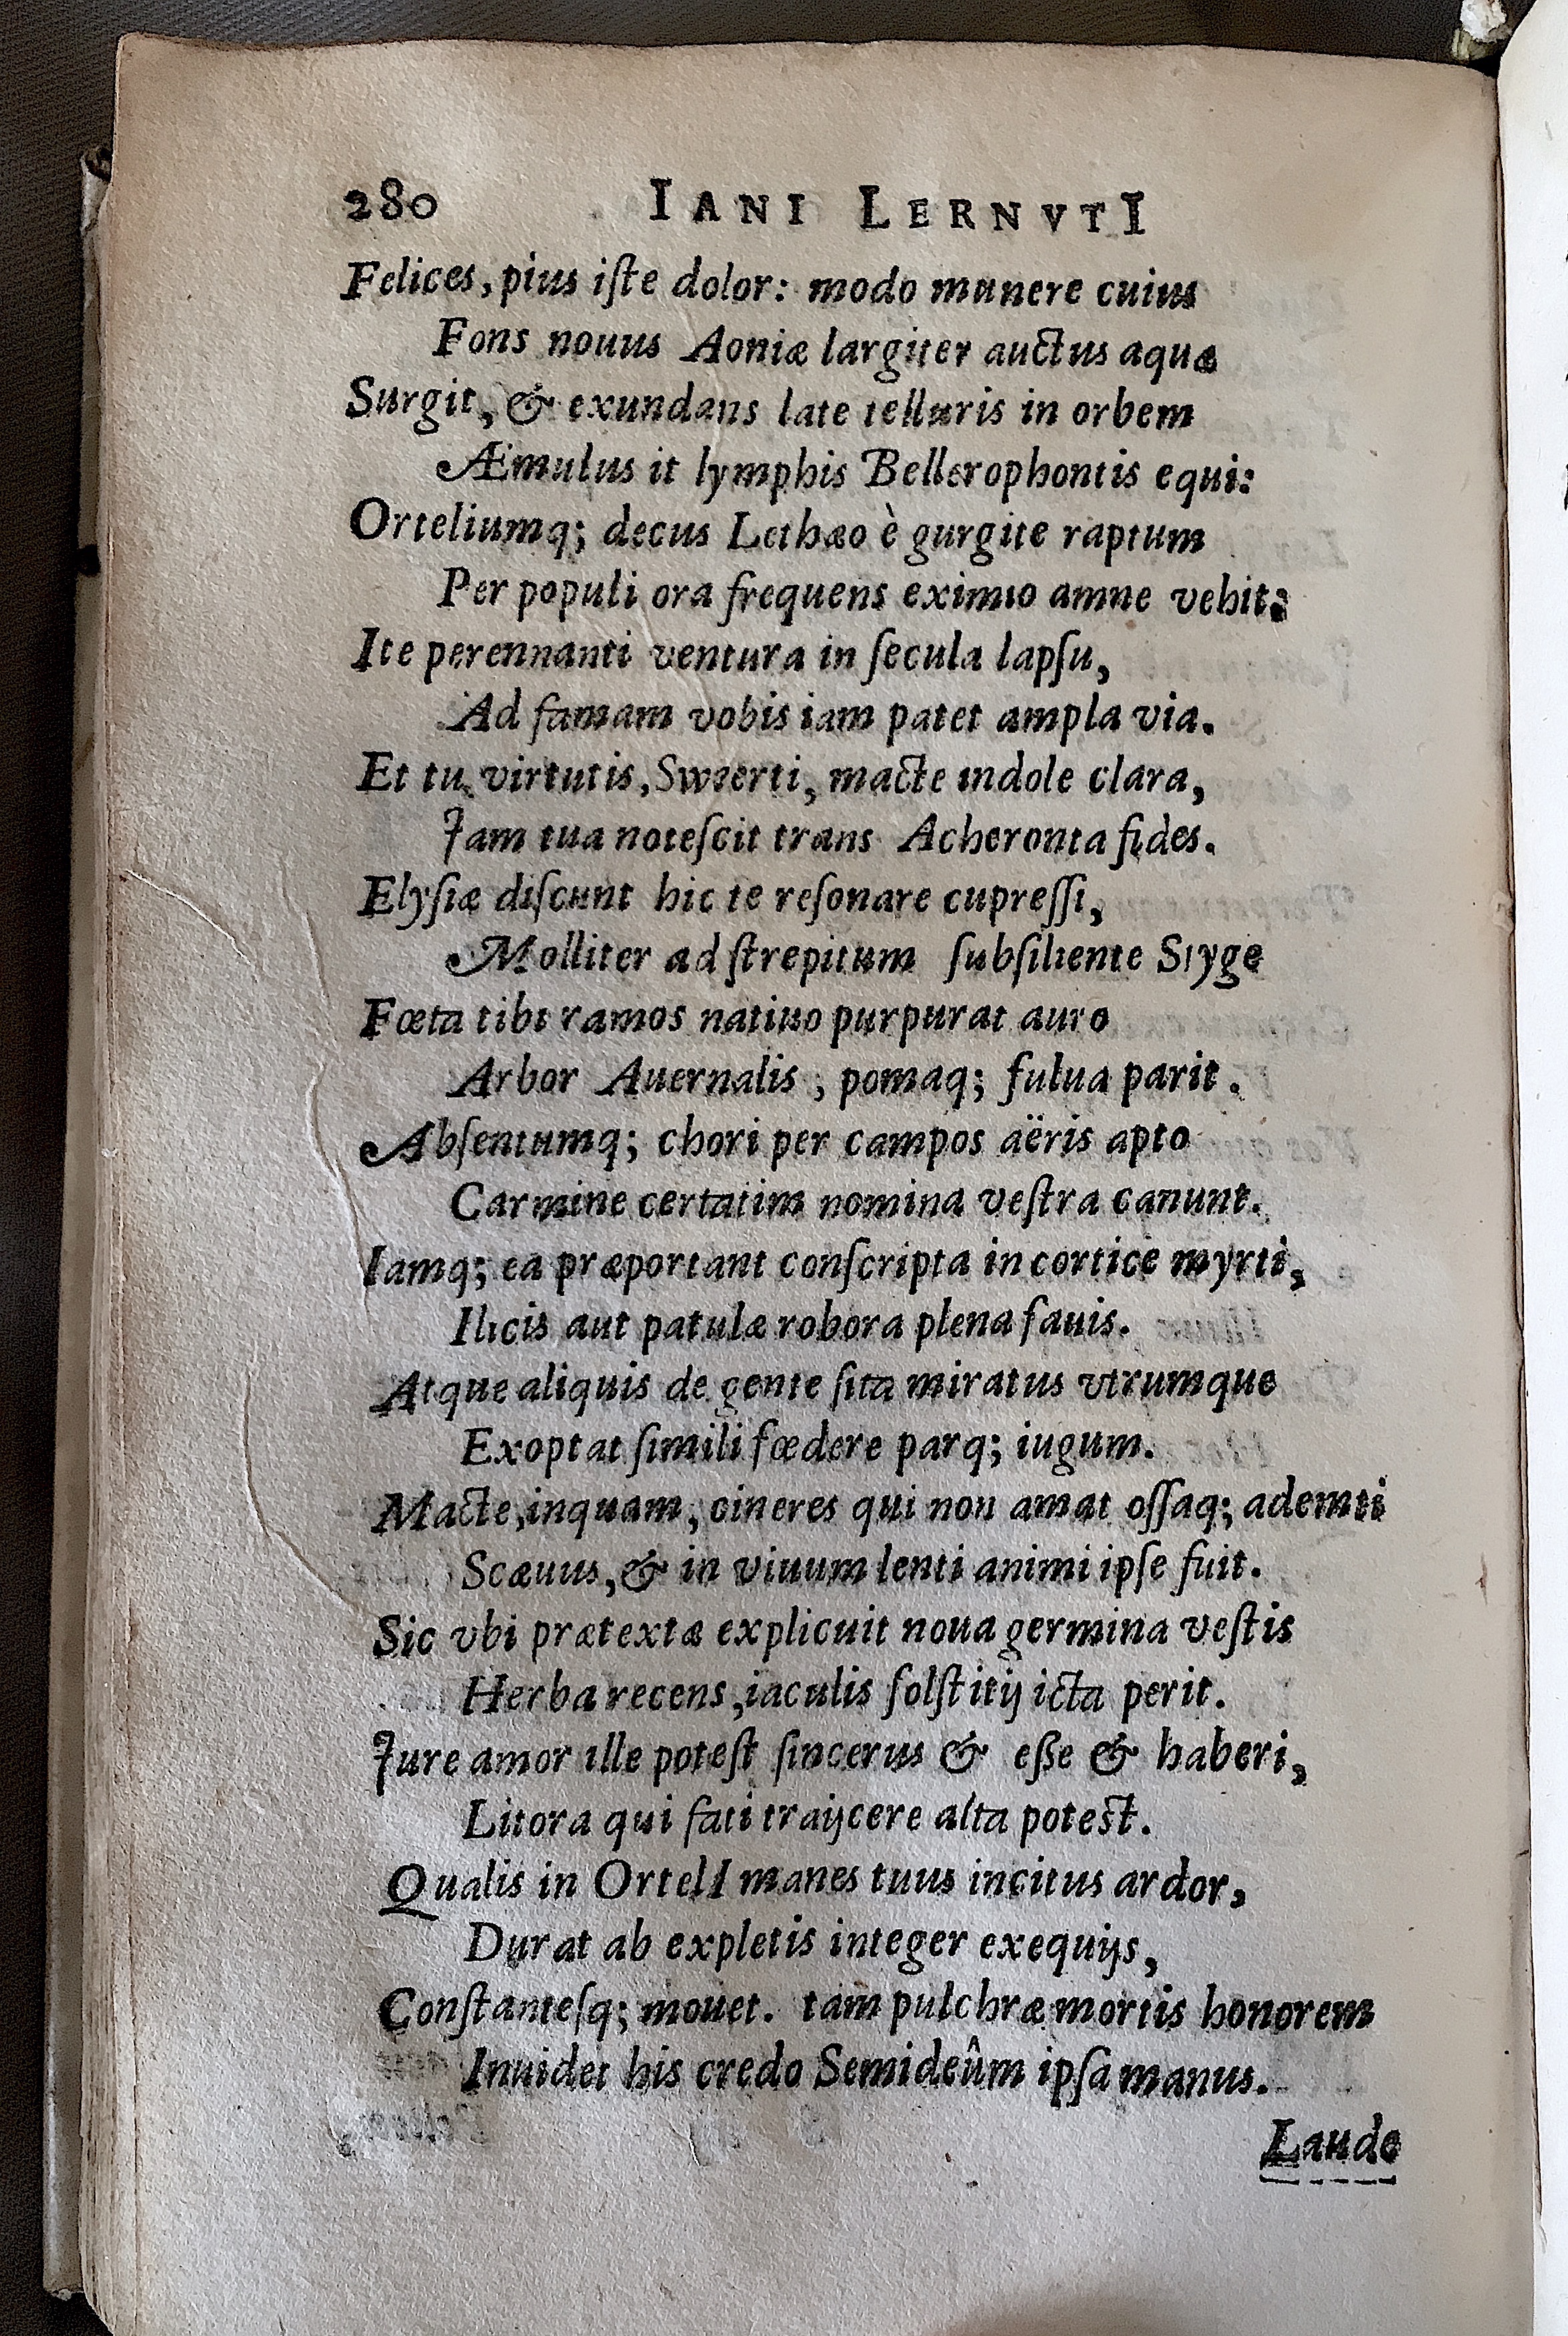 280 IANI LERNVTI
Felices, pius iſte dolor: modo munere cuius
Fons nouus Aoniæ largiter auctus aquæ
Surgit, & exundans late telluris in orbem
Æmulus it lymphis Bellerophontis equi:
Orteliumq; decus Lethæo è gurgite raptum
Per populi ora frequens eximio amne vehit:
Ite perennanti ventura in ſecula lapſu,
Ad famam vobis iam patet ampla via.
Et tu virtutis, Sweerti, macte indole clara,
Iam tua noteſcit trans Acheronta fides.
Elyſiæ diſcunt hic te reſonare cupreſſi,
Molliter ad ſtrepitum ſubſiliente Styge
Fœta tibi ramos natiuo purpurat auro
Arbor Auernalis, pomaq; fulua parit.
Abſentumq; chori per campos aëris apto
Carmine certatim nomina veſtra canunt.
Iamq; ea præportant conſcripta in cortice myrti,
Ilicis aut patulæ robora plena fauis.
Atque aliquis de gente ſita miratus vtrumque
Exoptat ſimili fœdere parq; iugum.
Macte, inquam, cineres qui non amat oſſaq; ademti
Scæuus, & in viuum lenti animi ipſe fuit.
Sic vbi prætextæ explicuit noua germina veſtis
Herba recens, iaculis ſolſtitij icta perit.
Iure amor ille poteſt ſincerus & eſſe & haberi,
Litora qui fati traijcere alta poteſt.
Qualis in OrtelI manes tuus incitus ardor,
Durat ab expletis integer exequijs,
Conſtanteſq; mouet. tam pulchræ mortis honorem
Inuidet his credo Semideûm ipſa manus.
Laude